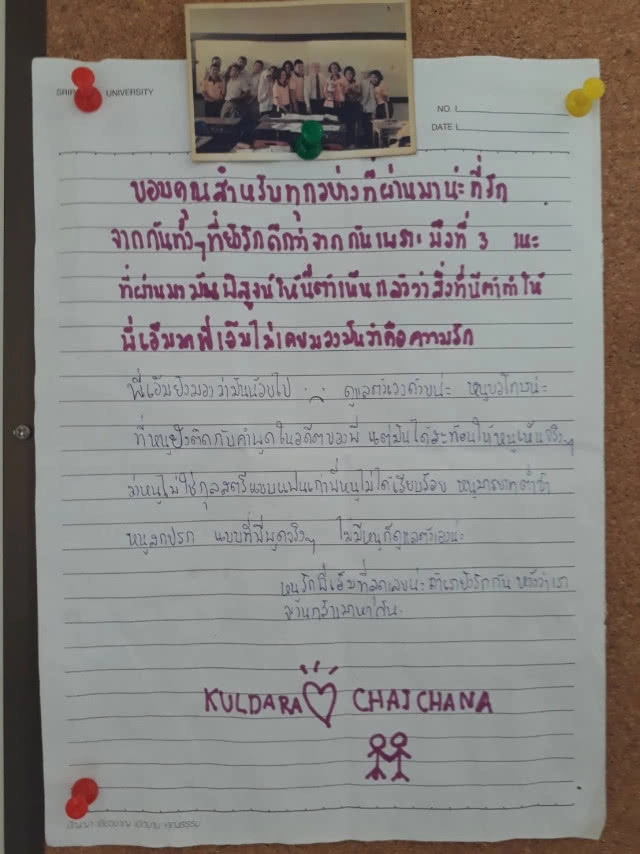 SRIP UNIVERSITY
NO.
DATE
ขอบคุณสำหรับทุกอย่างที่ผ่านมาน่ะที่รัก
จากกันทั้งๆที่ยังรักดีกว่าจากกันเพราะ มือที่ 3 เนะ
ที่ผ่านมา มันพิสูจน์ให้ เห็น แล้วว่าสิ่งที่ ทำให้
พี่เอ็มมาพี่เอ็มไม่เคยมองมันว่าคือความรัก
พี่เอ็มยังมองว่ามันน้อยไป ดูแลตัวเองด้วยน่ะ หนูขอโทษน่ะ
ที่หนูยังติดกับคำพูดในอดีตของพี่ แต่มันได้สะท้อนให้หนูเห็นจริงๆ
ว่าหนูไม่ใช่กุลสตรีแบบแฟนเก่าพี่หนูไม่ได้เรียบร้อย หนูมารยาทต่ำช้า
หนูสกปรก แบบที่พี่พูดจริงๆ ไม่มีหนูก็ดูแลตัวเองน่ะ
หนูรักพี่เอ็มที่สุดเลยน่ะ ถ้าเรายังรักกัน หวังว่าเรา
จะ กลับมาหากัน
KULDARA CHAICHANA